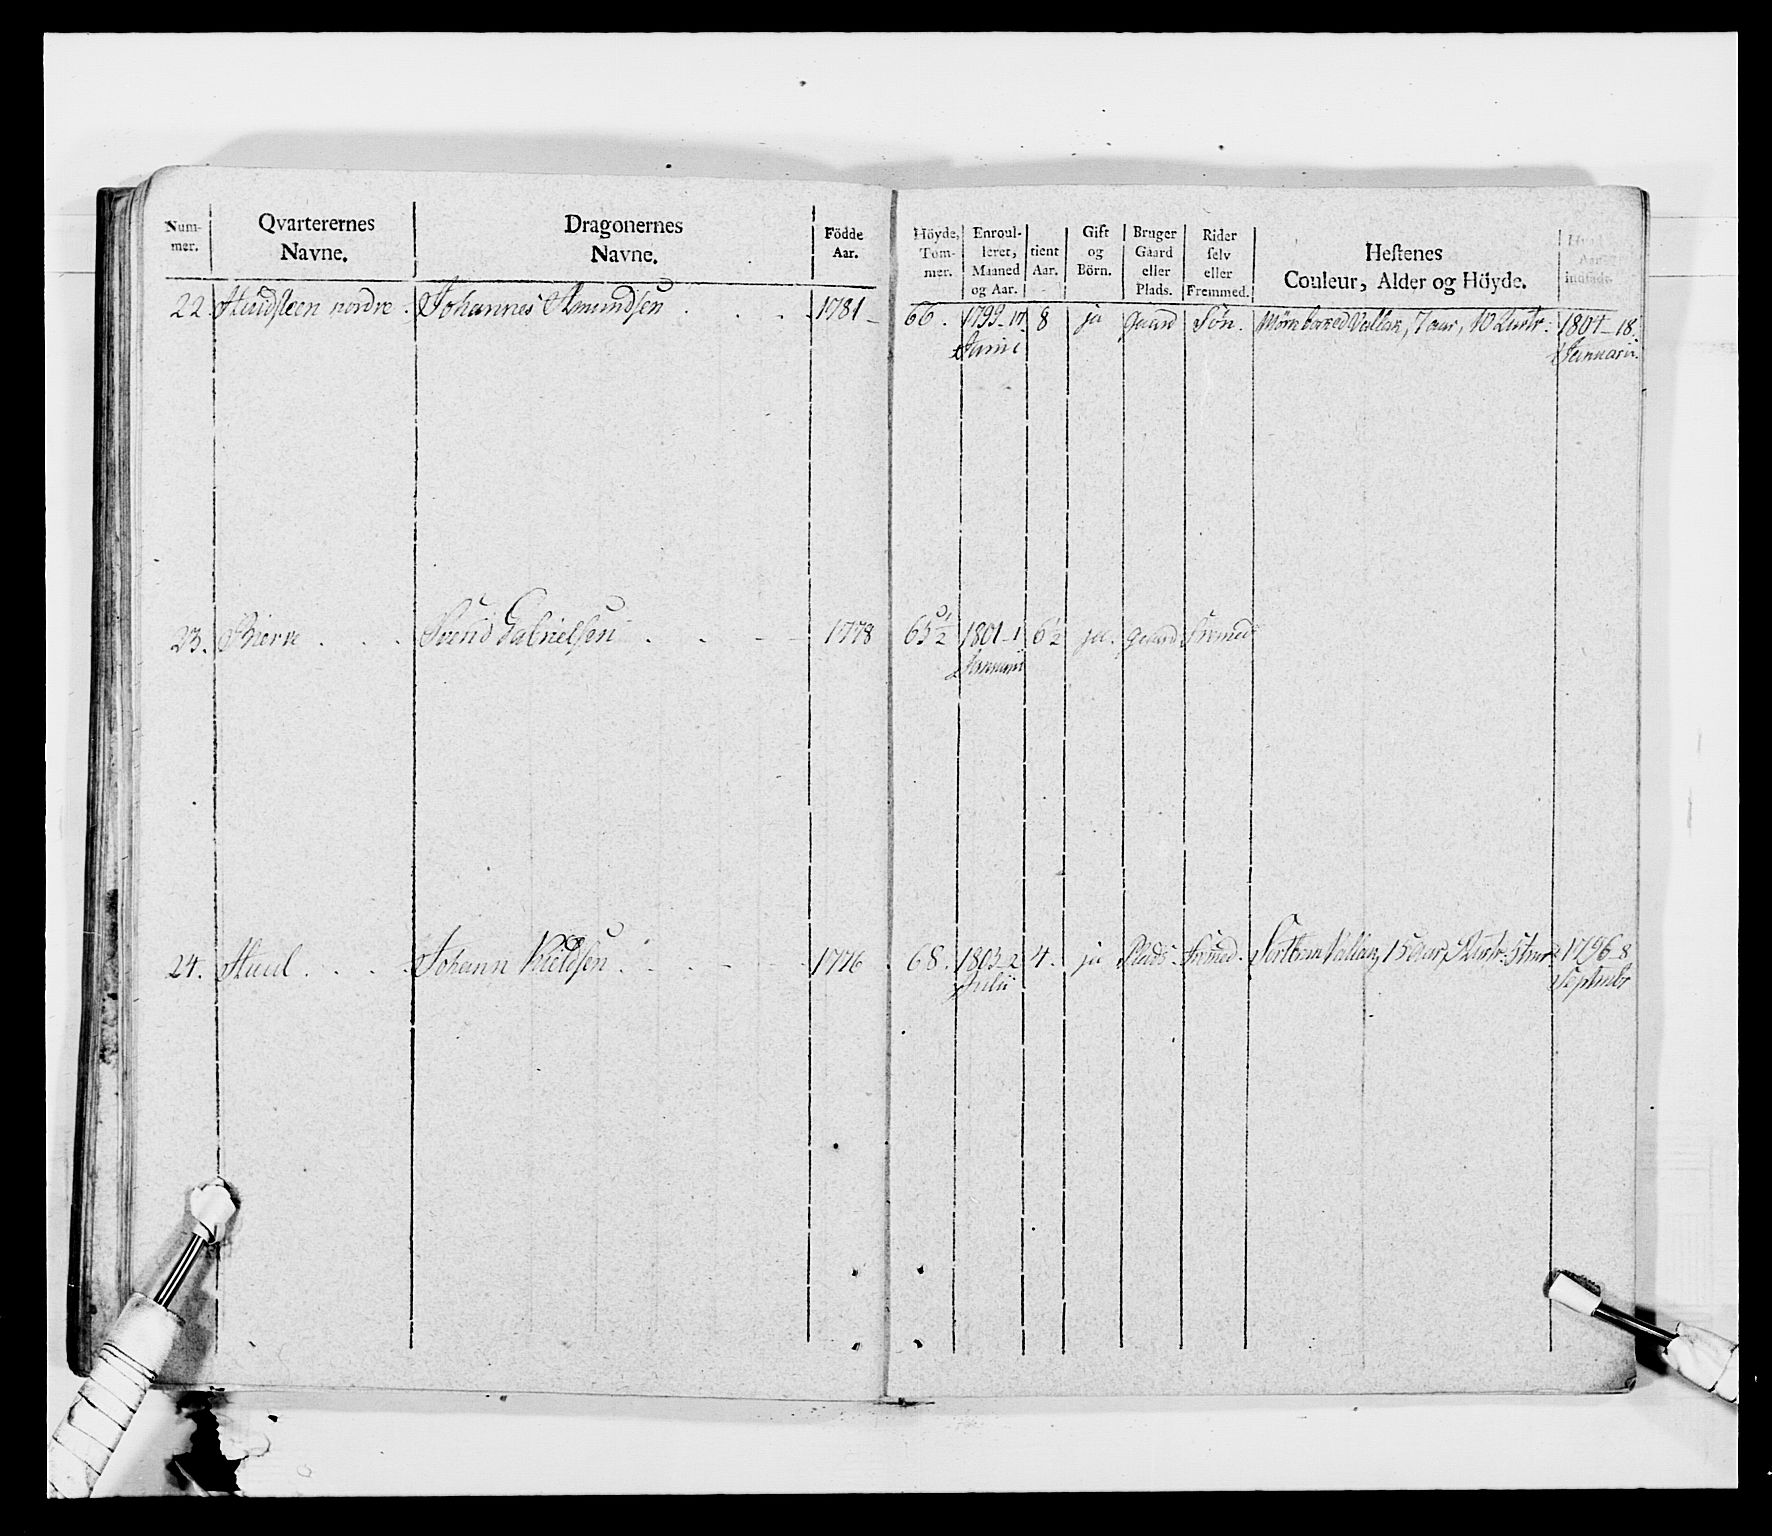 Num-
mer.
Qvarterernes
Navne.
Dragonernes
Navne.
Födde
Aar.
Höyde,
Tom-
mer.
Enroul-
leret,
Maaned
og Aar.
tient
Aar.
Gift
og
Börn.
Bruger
Gaard
eller
Plads.
Rider
selv
eller
Fremmed.
Hestenes
Couleur, Alder og Höyde.
Aar
indsadt.
22. Huudsteen nordre. Johannes Amundsen 1781 66. 1799-17 8 ja gaard Søn. Mørkbored Vallak, 7 aar, 10 Quartr: 1804-18
Junii Januarii.
23. Bierve Svend Gabrielsen 1778 65 1/2 1801-1 6 1/2 ja. gaard Fremed
Januarii
24. Huul Johann Kieldsen 1776 68. 1803-2 4. ja Plads Fremed. Vallak, 15 aar, 1796-8
Julii Septembr